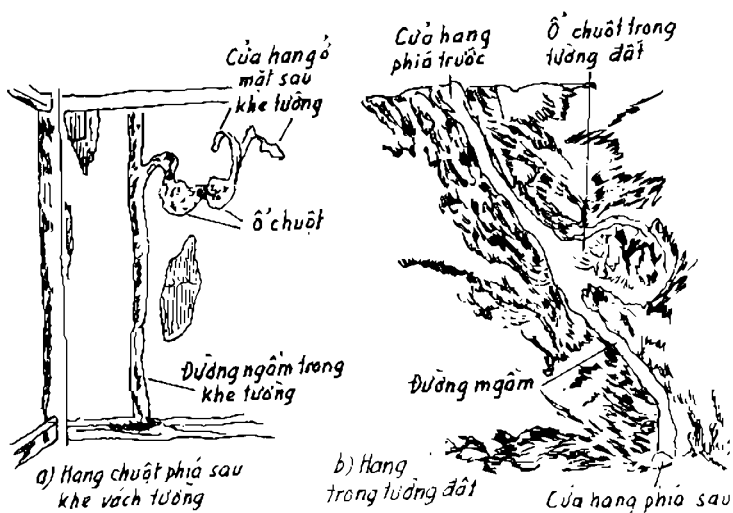 Cửa hang ở
mặt sau
khe tường
Ổ chuột
Đường ngầm trong
khe tường
a) Hang chuột phía sau
khe vách tường
Cửa hang
phiá trước
Ổ chuột trong
tường đất
Đường mgầm
b) Hang
trong tường đất
Cửa hang phiá sau